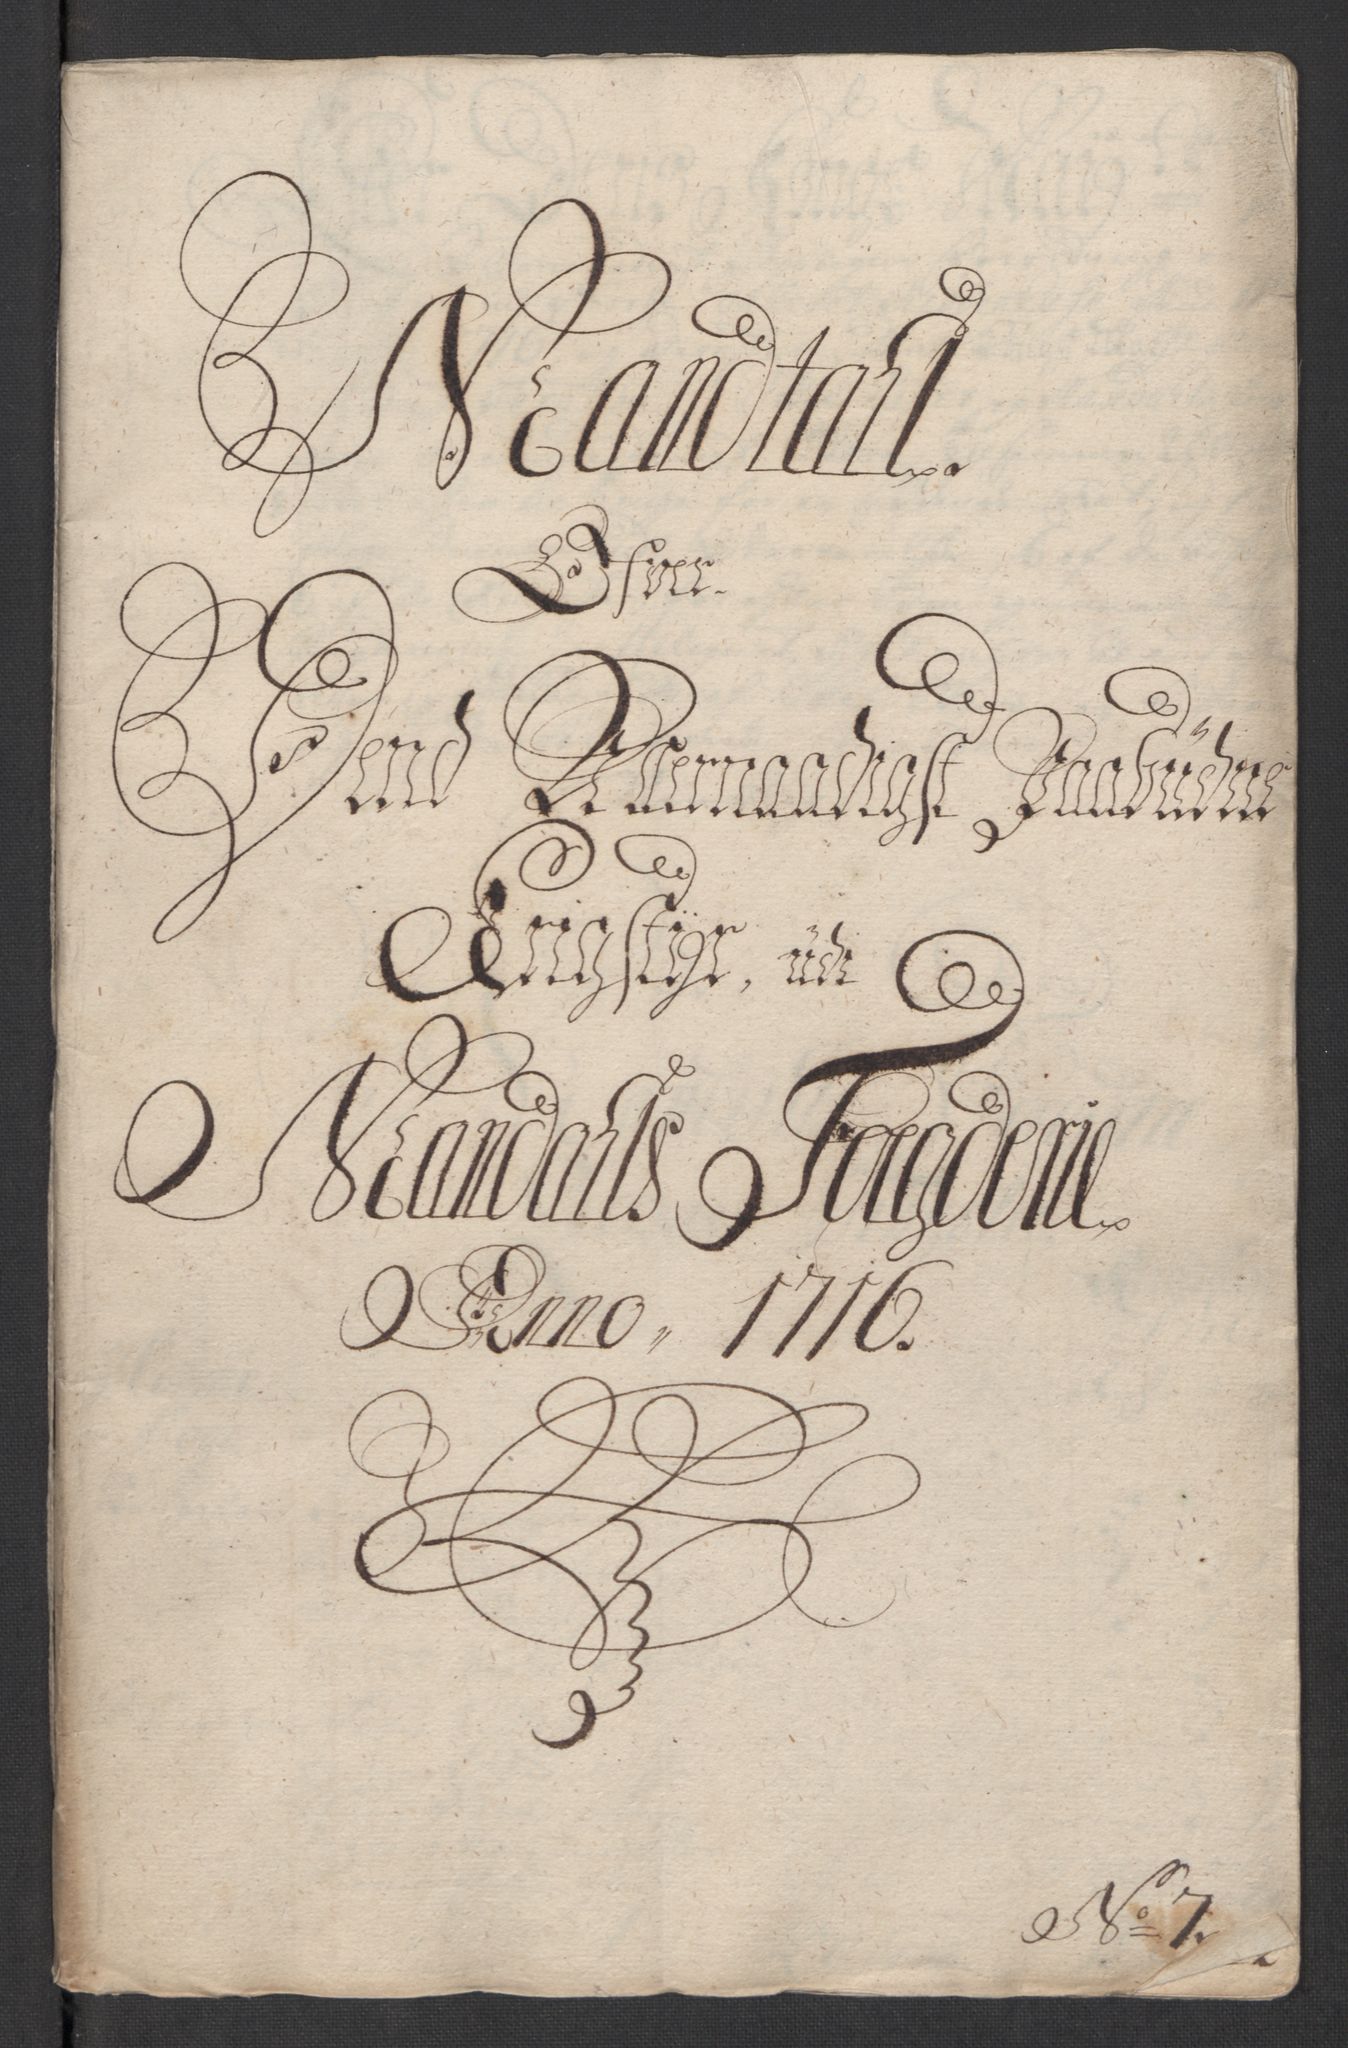 Mandtall
Ofver
Dend Allernaadigst Paabudne
Krigstyr, udi
Mandahls Fougderie
Anno, 1716.
No 7.